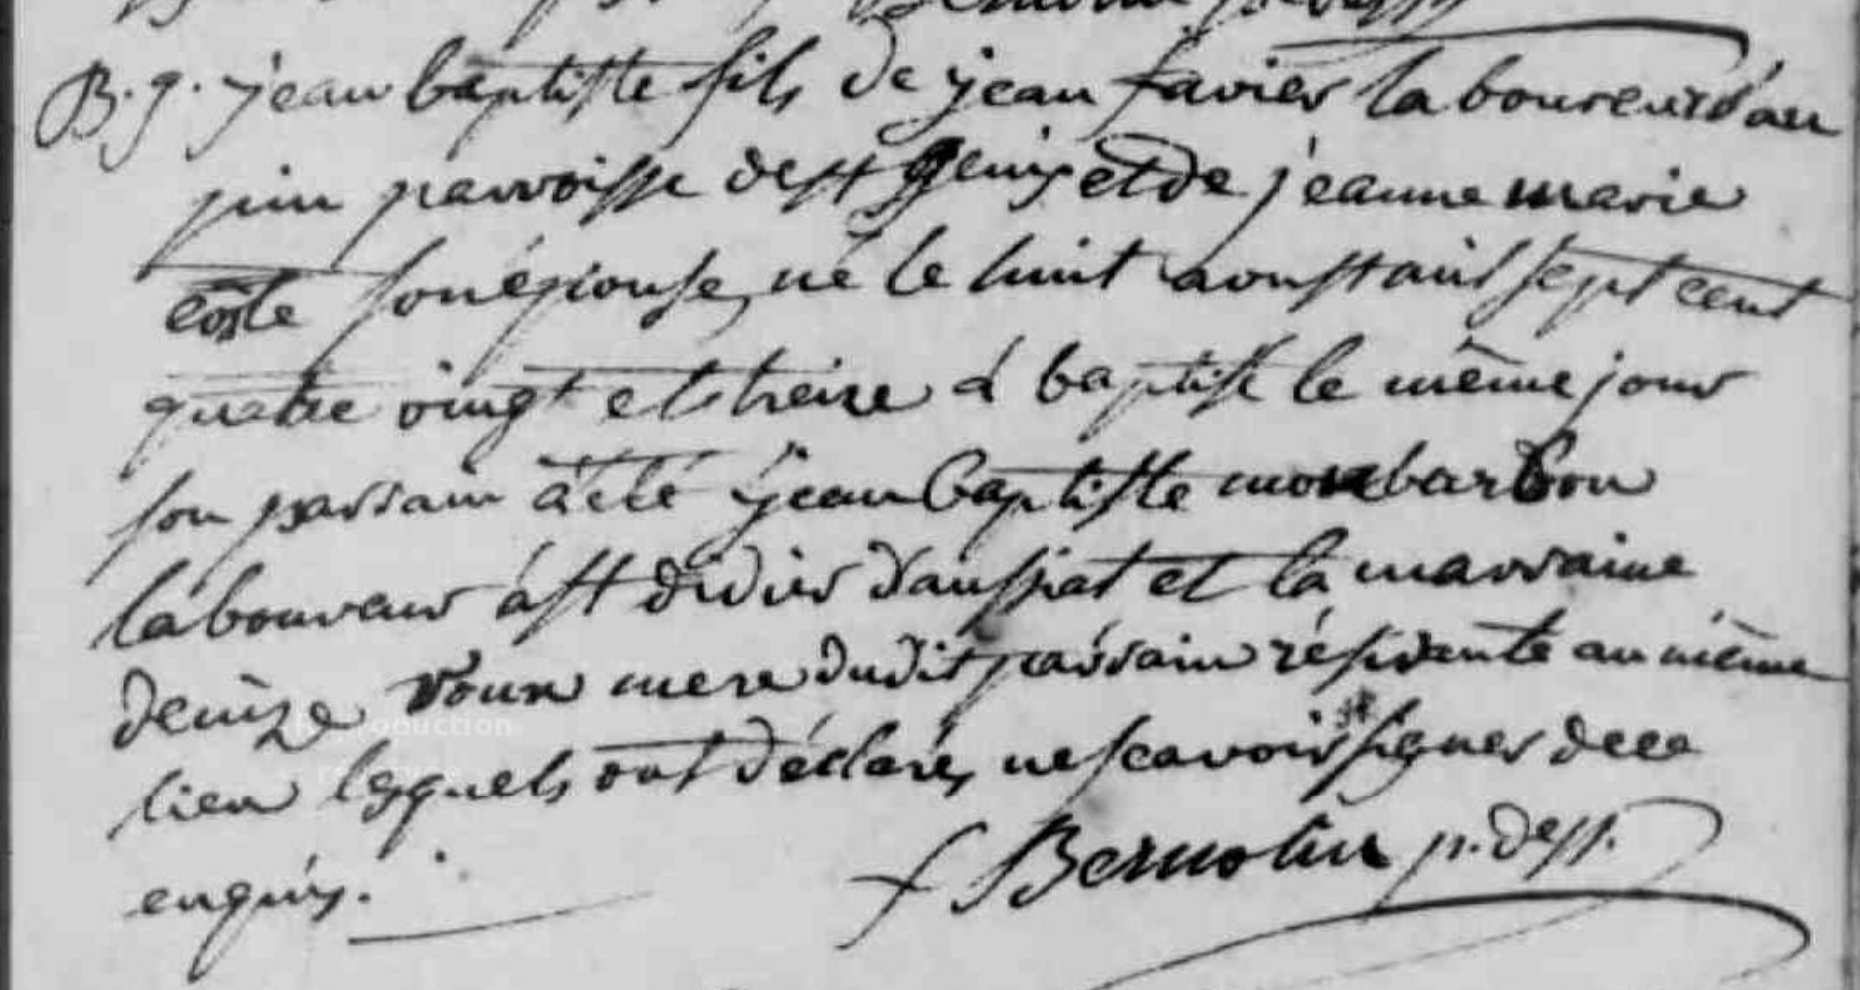 B. g. jean baptiste fils de jean favier laboureur d'au
pin parroisse de st genis et de jeanne marie
coste son épouse, né le huit aoust mil sept cent
quatre vingt et treize & baptisé le même jour
son parrain a été jean baptiste monbarbon
laboureur à st didier d'aussiat et la marraine
denize roux mere dudit parrain résidante au même
lieu lesquels ont déclarés ne scavoir signer de ce
enquis.
Bernolin p. dess.